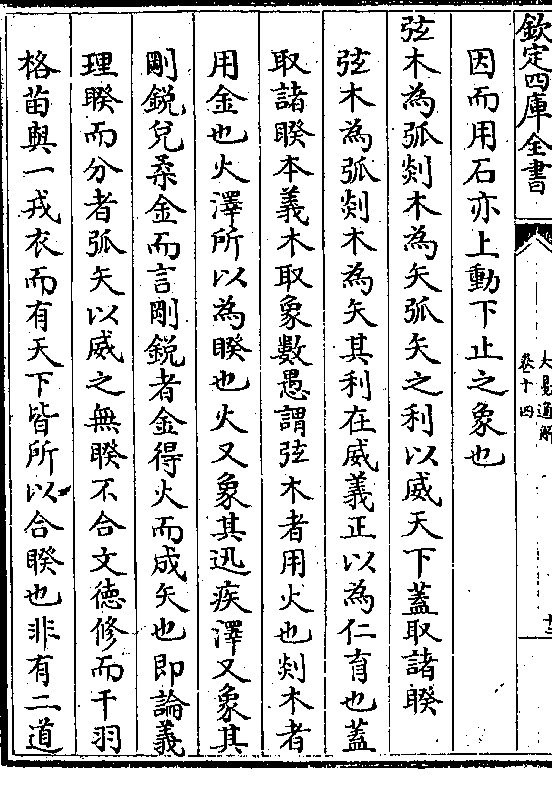 欽定四庫全書
大易通解
卷十四
十三
因而用石亦上動下止之象也
弦木為弧剡木為矢弧矢之利以威天下蓋取諸睽
弦木為弧剡木為矢其利在威義正以為仁育也蓋
取諸睽本義木取象數愚謂弦木者用火也剡木者
用金也火澤所以為睽也火又象其迅疾澤又象其
剛鋭兌柔金而言剛鋭者金得火而成矢也即論義
理睽而分者弧矢以威之無睽不合文徳修而干羽
格苗與一戎衣而有天下皆所以合睽也非有二道